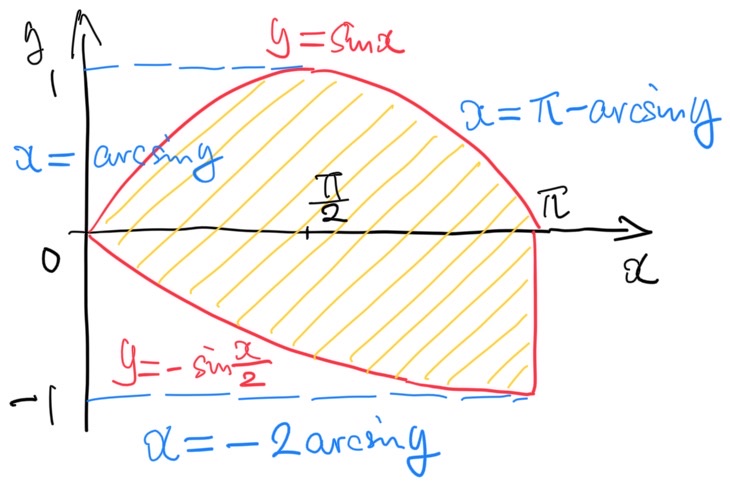 y
y = sin x
1
x = π - arcsin y
x = arcsin y
π/2
π
0
x
y = - sin x/2
-1
x = - 2 arcsin y